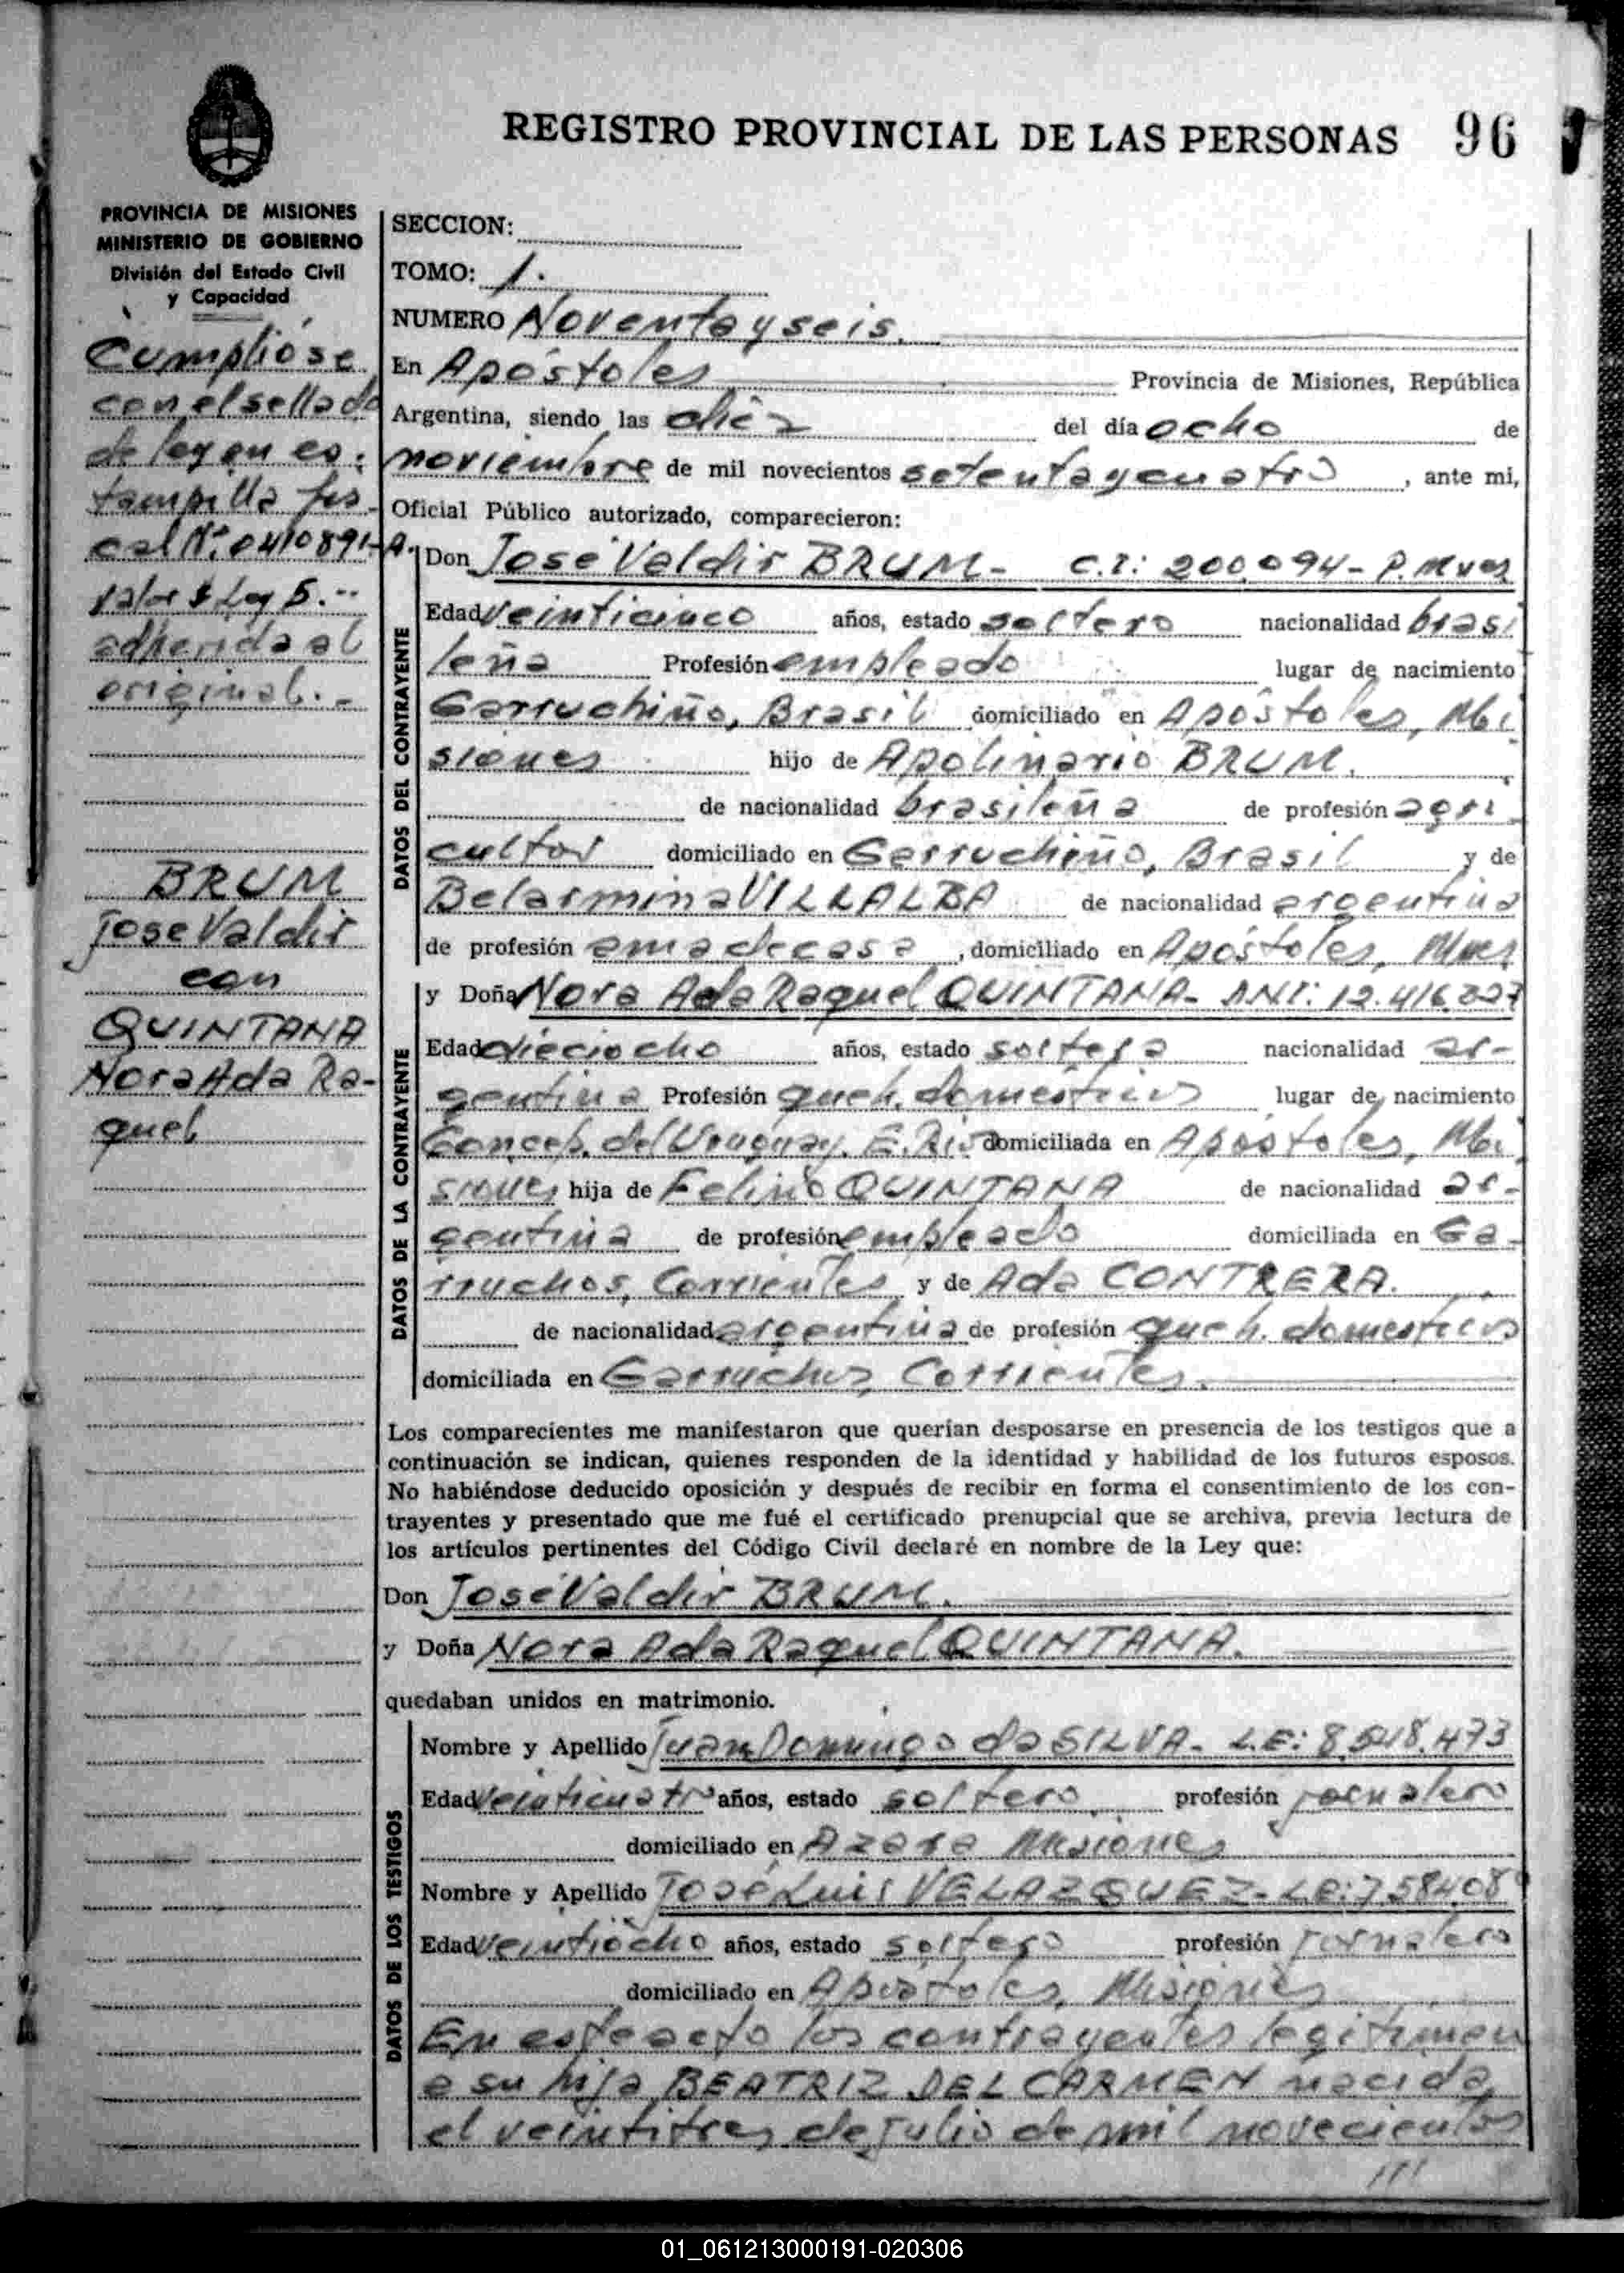 REGISTRO PROVINCIAL DE LAS PERSONAS 96
PROVINCIA DE MISIONES
MINISTERIO DE GOBIERNO
División del Estado Civil
y Capacidad
Cumplióse
con el sellado
de ley en es-
tampilla fis-
cal Nº 0410891-A.
valor $ Ley 5.--
adherida al
original.-
BRUM
Jose Valdir
con
QUINTANA
Nora Ada Ra-
quel
SECCION:
TOMO: 1.
NUMERO Noventa y seis.
En Apóstoles Provincia de Misiones, República
Argentina, siendo las diez del día ocho de
noviembre de mil novecientos setenta y cuatro, ante mi,
Oficial Público autorizado, comparecieron:
DATOS DEL CONTRAYENTE
Don José Valdir BRUM- C.I.: 200.094- P. Mnes
Edad veinticinco años, estado soltero nacionalidad brasi
leña Profesión empleado lugar de nacimiento
Garruchiño, Brasil domiciliado en Apóstoles, Mi
siones hijo de Apolinario BRUM.
de nacionalidad brasileña de profesión agri
cultor domiciliado en Garruchiño, Brasil y de
Belarmina VILLALBA de nacionalidad argentina
de profesión ama de casa, domiciliado en Apóstoles, Mnes
DATOS DE LA CONTRAYENTE
y Doña Nora Ada Raquel QUINTANA- DNI: 12.416.327
Edad dieciocho años, estado soltera nacionalidad ar-
gentina Profesión queh. domesticos lugar de nacimiento
Concep. del Uruguay, E. Rios domiciliada en Apóstoles, Mi
siones hija de Felino QUINTANA de nacionalidad ar-
gentina de profesión empleado domiciliada en Ga-
rruchos, Corrientes y de Ada CONTRERA.
de nacionalidad argentina de profesión queh. domesticos
domiciliada en Garruchos, Corrientes.
Los comparecientes me manifestaron que querían desposarse en presencia de los testigos que a
continuación se indican, quienes responden de la identidad y habilidad de los futuros esposos.
No habiéndose deducido oposición y después de recibir en forma el consentimiento de los con-
trayentes y presentado que me fué el certificado prenupcial que se archiva, previa lectura de
los artículos pertinentes del Código Civil declaré en nombre de la Ley que:
Don José Valdir BRUM.
y Doña Nora Ada Raquel QUINTANA.
quedaban unidos en matrimonio.
DATOS DE LOS TESTIGOS
Nombre y Apellido Juan Domingo da SILVA- L.E: 8.548.473
Edad veinticuatro años, estado soltero, profesión jornalero
domiciliado en Azara Misiones
Nombre y Apellido José Luis VELAZQUEZ- L.E:
Edad veintiocho años, estado soltero profesión jornalero
domiciliado en Apóstoles, Misiones
En este acto los contrayentes legitiman
a su hija BEATRIZ DEL CARMEN nacida
el veintitres de julio de mil novecientos
///
01_061213000191-020306